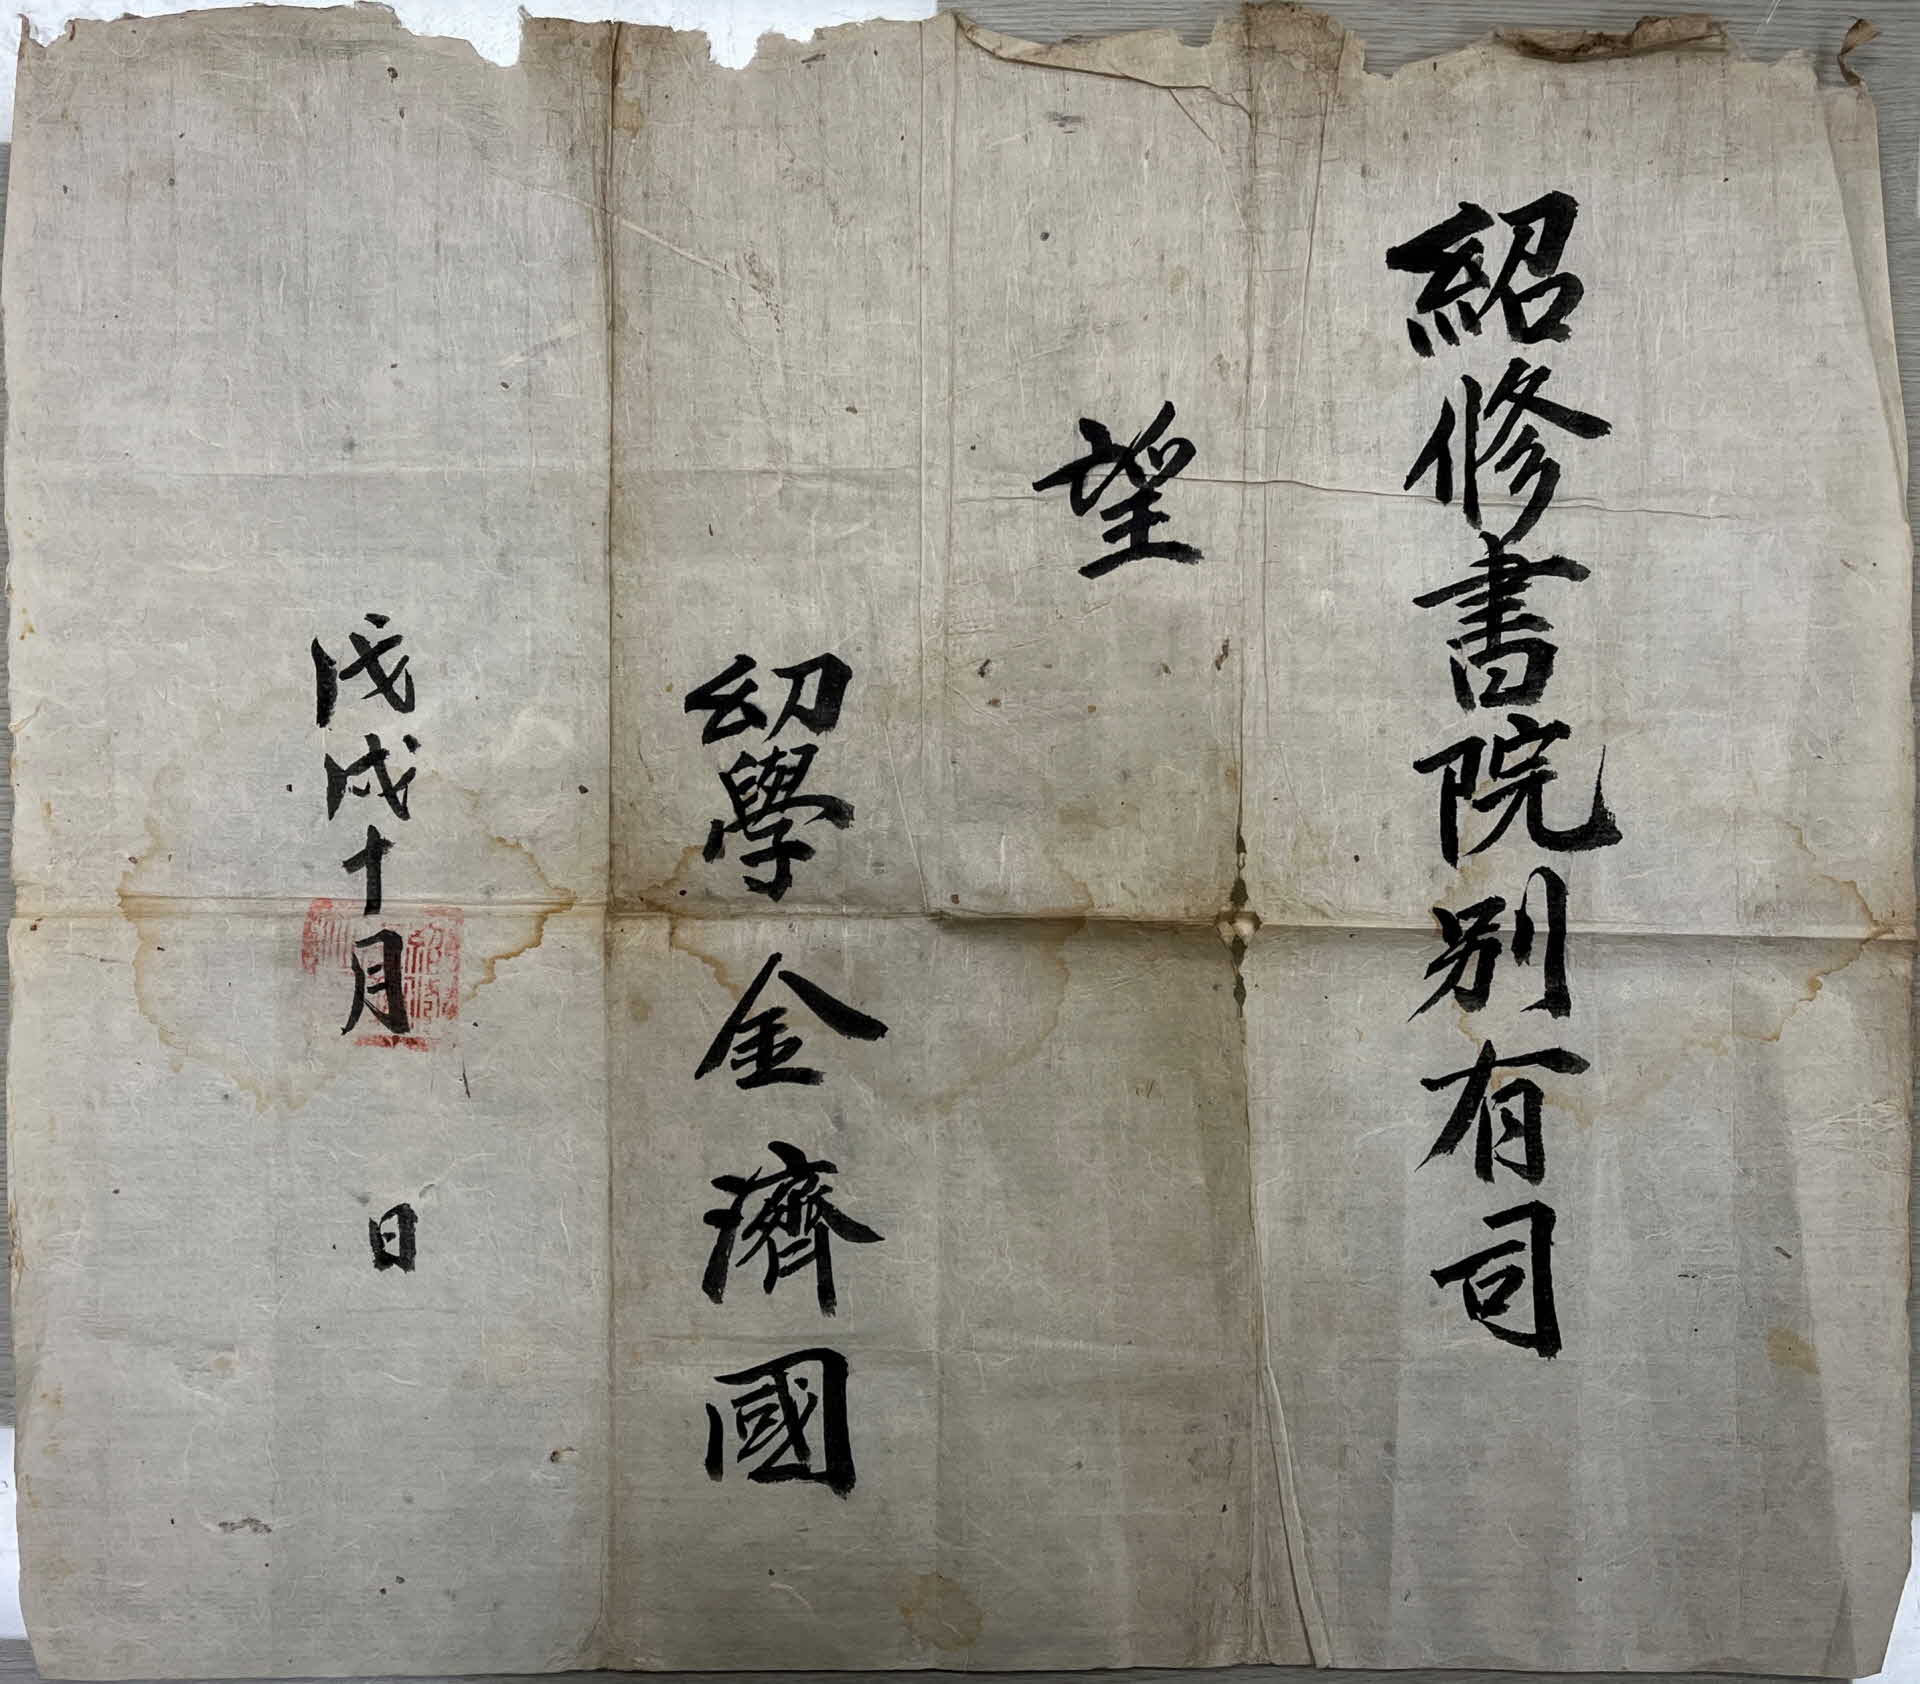 紹修書院別有司
望
幼學金濟國
戊戌十月 日